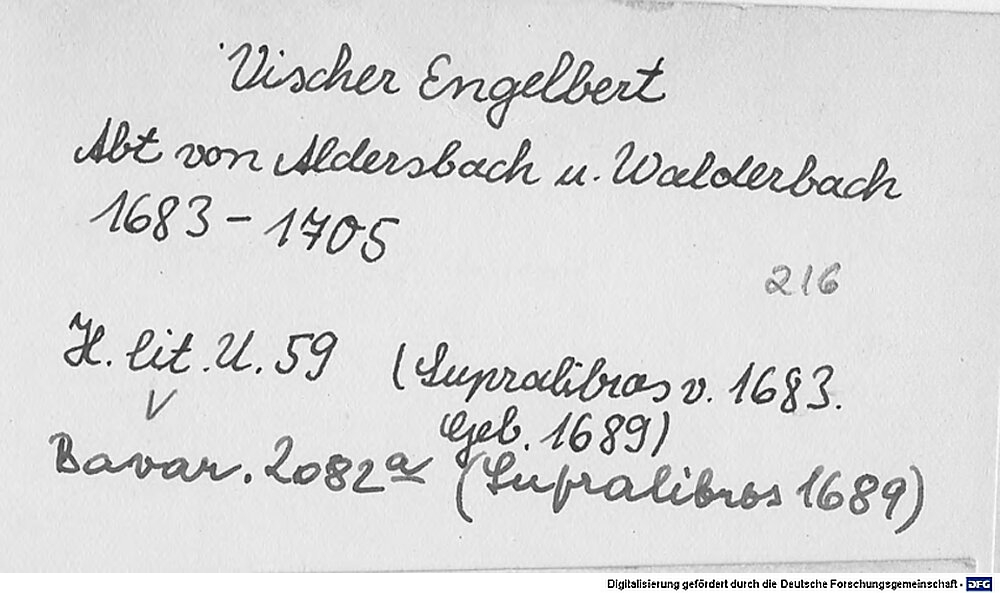 Vischer Engelbert
Abt von Aldersbach u. Walderbach
1683 - 1705
216
H. lit. U. 59 (Supralibros v. 1683.
Geb. 1689)
V
Bavar. 2082ª (Supralibros 1689)
Digitalisierung gefördert durch die Deutsche Forschungsgemeinschaft - DFG